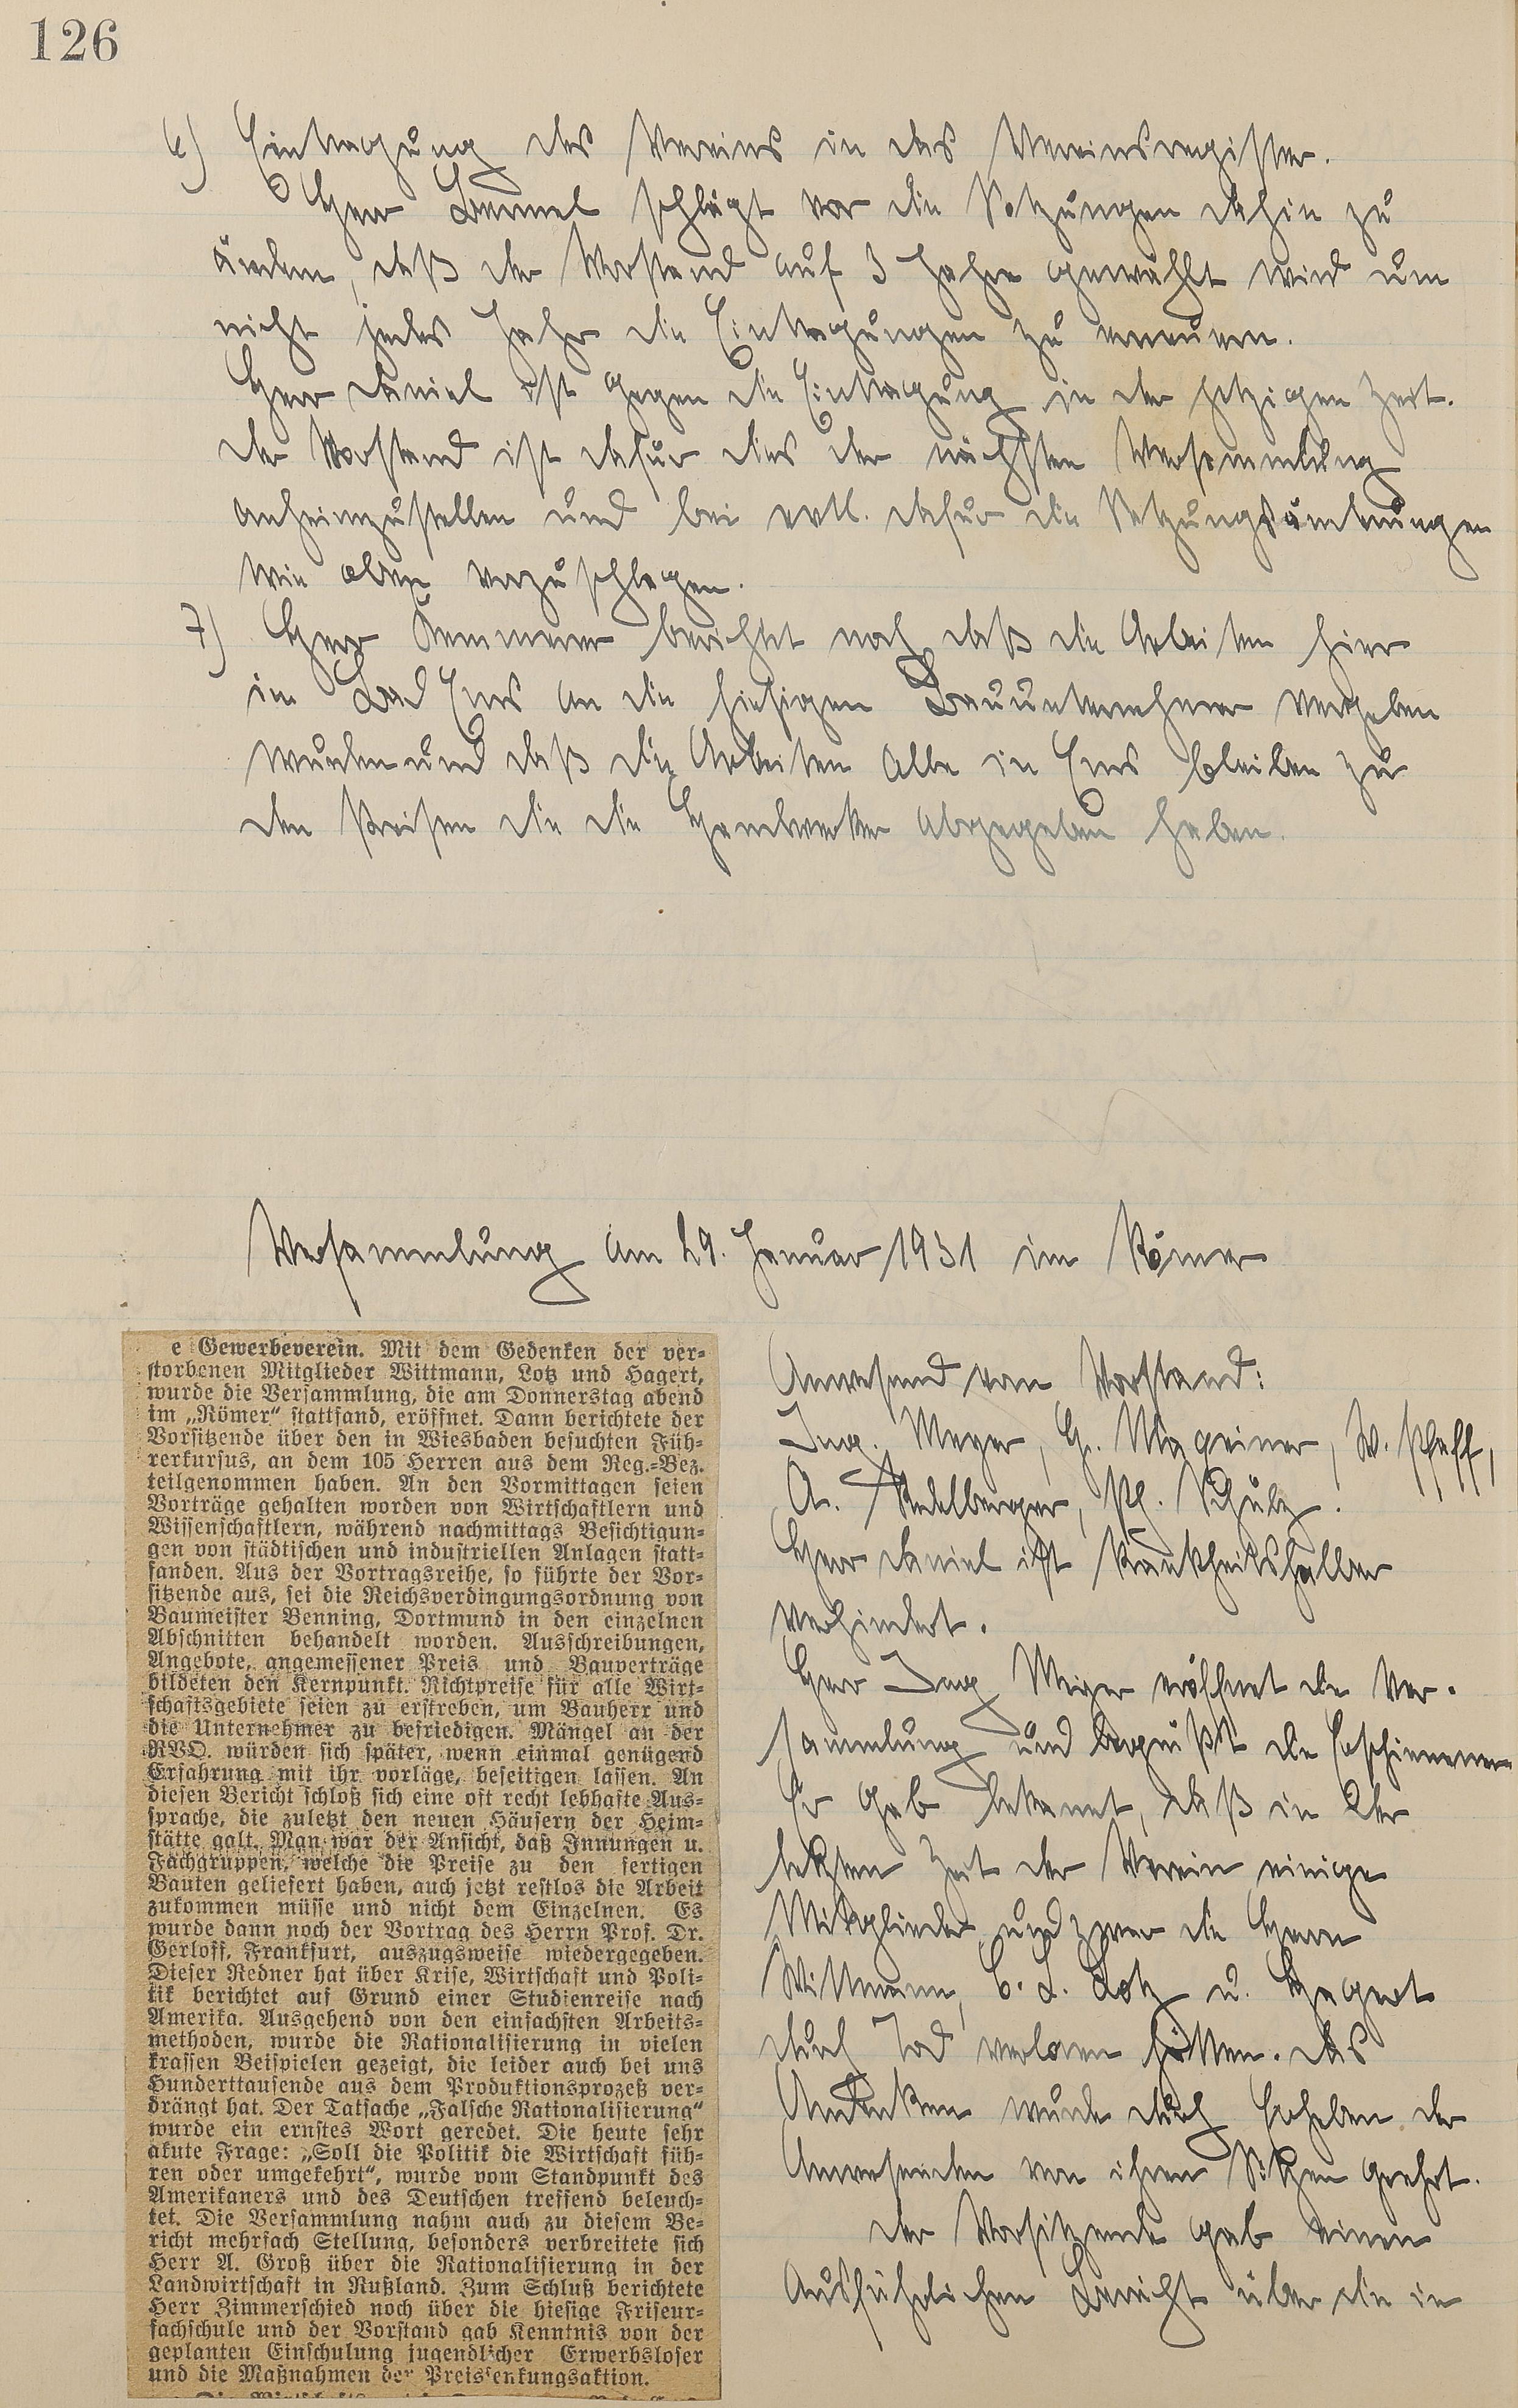 126
6) Eintragung des Vereins in das Vereinsregister.
Herr Bermel schlägt vor die Satzungen dahin zu
ändern, daß der Vorstand auf 3 Jahre gewählt wird um
nicht jedes Jahr die Eintragungen zu erneuern.
Herr Daniel ist gegen die Eintragung in der jetzigen Zeit.
der Vorstand ist dafür dies der nächsten Versammlung
anheimzustellen und bei evtl. dafür die Satzungsänderungen
wie oben vorzuschlagen.
7) Herr Kemmerer berichtet noch daß die Arbeiten hier
in Bad Ems an die hiesigen Bauunternehmer vergeben
wurden und daß die Arbeiten alle in Ems bleiben zu
den Preisen die die Handwerker abgegeben haben.
Versammlung am 29. Januar 1931 im Römer
e Gewerbeverein. Mit dem Gedenken der ver-
storbenen Mitglieder Wittmann, Lotz und Hagert,
wurde die Versammlung, die am Donnerstag abend
im „Römer“ stattfand, eröffnet. Dann berichtete der
Vorsitzende über den in Wiesbaden besuchten Füh-
rerkursus, an dem 105 Herren aus dem Reg.-Bez.
teilgenommen haben. An den Vormittagen seien
Vorträge gehalten worden von Wirtschaftlern und
Wissenschaftlern, während nachmittags Besichtigun-
gen von städtischen und industriellen Anlagen statt-
fanden. Aus der Vortragsreihe, so führte der Vor-
sitzende aus, sei die Reichsverdingungsordnung von
Baumeister Benning, Dortmund in den einzelnen
Abschnitten behandelt worden. Ausschreibungen,
Angebote, angemessener Preis und Bauverträge
bildeten den Kernpunkt. Richtpreise für alle Wirt-
schaftsgebiete seien zu erstreben, um Bauherr und
die Unternehmer zu befriedigen. Mängel an der
RVO. würden sich später, wenn einmal genügend
Erfahrung mit ihr vorläge, beseitigen lassen. An
diesen Bericht schloß sich eine oft recht lebhafte Aus-
sprache, die zuletzt den neuen Häusern der Heim-
stätte galt. Man war der Ansicht, daß Innungen u.
Fachgruppen, welche die Preise zu den fertigen
Bauten geliefert haben, auch jetzt restlos die Arbeit
zukommen müsse und nicht dem Einzelnen. Es
wurde dann noch der Vortrag des Herrn Prof. Dr.
Gerloff, Frankfurt, auszugsweise wiedergegeben.
Dieser Redner hat über Krise, Wirtschaft und Poli-
tik berichtet auf Grund einer Studienreise nach
Amerika. Ausgehend von den einfachsten Arbeits-
methoden, wurde die Rationalisierung in vielen
krassen Beispielen gezeigt, die leider auch bei uns
Hunderttausende aus dem Produktionsprozeß ver-
drängt hat. Der Tatsache „Falsche Rationalisierung“
wurde ein ernstes Wort geredet. Die heute sehr
akute Frage: „Soll die Politik die Wirtschaft füh-
ren oder umgekehrt“, wurde vom Standpunkt des
Amerikaners und des Deutschen treffend beleuch-
tet. Die Versammlung nahm auch zu diesem Be-
richt mehrfach Stellung, besonders verbreitete sich
Herr A. Groß über die Rationalisierung in der
Landwirtschaft in Rußland. Zum Schluß berichtete
Herr Zimmerschied noch über die hiesige Friseur-
fachschule und der Vorstand gab Kenntnis von der
geplanten Einschulung jugendlicher Erwerbsloser
und die Maßnahmen der Preissenkungsaktion.
Anwesend vom Vorstand:
Ing. Meyer, G. Mageiner, W. Pfaff,
A. Stadelberger, Ph. Schulz.
Herr Daniel ist krankheitshalber
verhindert.
Herr Ing Meyer eröffnet die Ver-
sammlung und begrüßt die Erschienenen
Er gab bekannt, daß in der
letzten Zeit der Verein einige
Mitglieder und zwar die Herrn
Wittmann, C. L. Lotz u. Hagert
durch Tod verloren hätten. das
Andenken wurde durch Erheben der
Anwesenden von ihren Sitzen geehrt.
der Vorsitzende gab einen
ausführlichen Bericht über die in